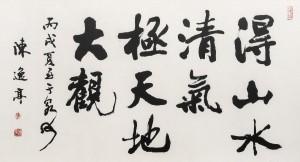 得山水
清氣
極天地
大觀
丙戌夏至于泉
陳逸亭